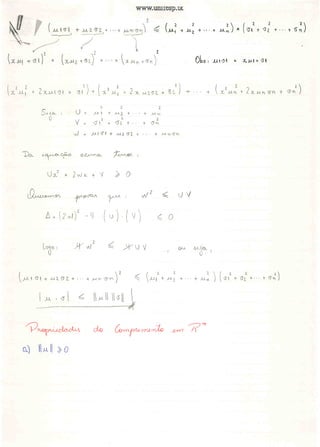 www.unitosp.tk
(u1v1 + u2v2 + ... + unvn)² ≤ (u1² + u2² + ... + un²) * (v1² + v2² + ... + vn²)
(xu1 + v1)² + (xu2 + v2)² + ... + (xun + vn)² Obs: u1v1 + xu1+v1
(x²u1² + 2xu1v1 + v1²) + (x²u2² + 2xu2v2 + v2²) + ... + (x²un² + 2xunvn + vn²)
Seja: U = u1² + u2² + ... + un²
V = v1² + v2² + ... + vn²
W = u1v1 + u2v2 + ... + unvn
Da equação acima temos:
Ux² + 2Wx + V ≥ 0
Queremos provar que: W² ≤ UV
Δ = (2W)² - 4 (U)·(V) ≤ 0
Logo: 4W² ≤ 4UV, ou seja,
(u1v1 + u2v2 + ... + unvn)² ≤ (u1² + u2² + ... + un²)(v1² + v2² + ... + vn²)
|u·v| ≤ ||u|| ||v||
Propriedades do Comprimento em Rⁿ
a) ||u|| ≥ 0